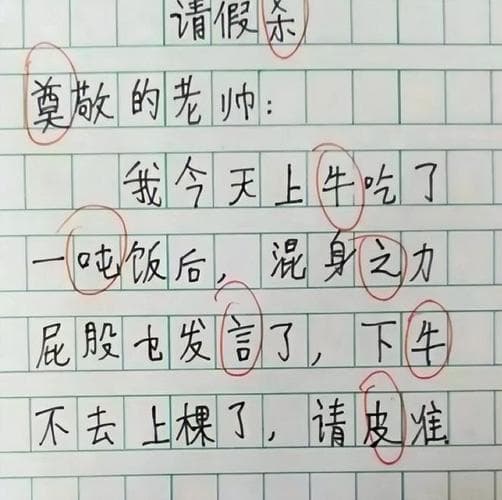 请假条
奠敬的老帅：
我今天上牛吃了
一吨饭后，混身之力
屁股也发言了，下牛
不去上棵了，请皮准.